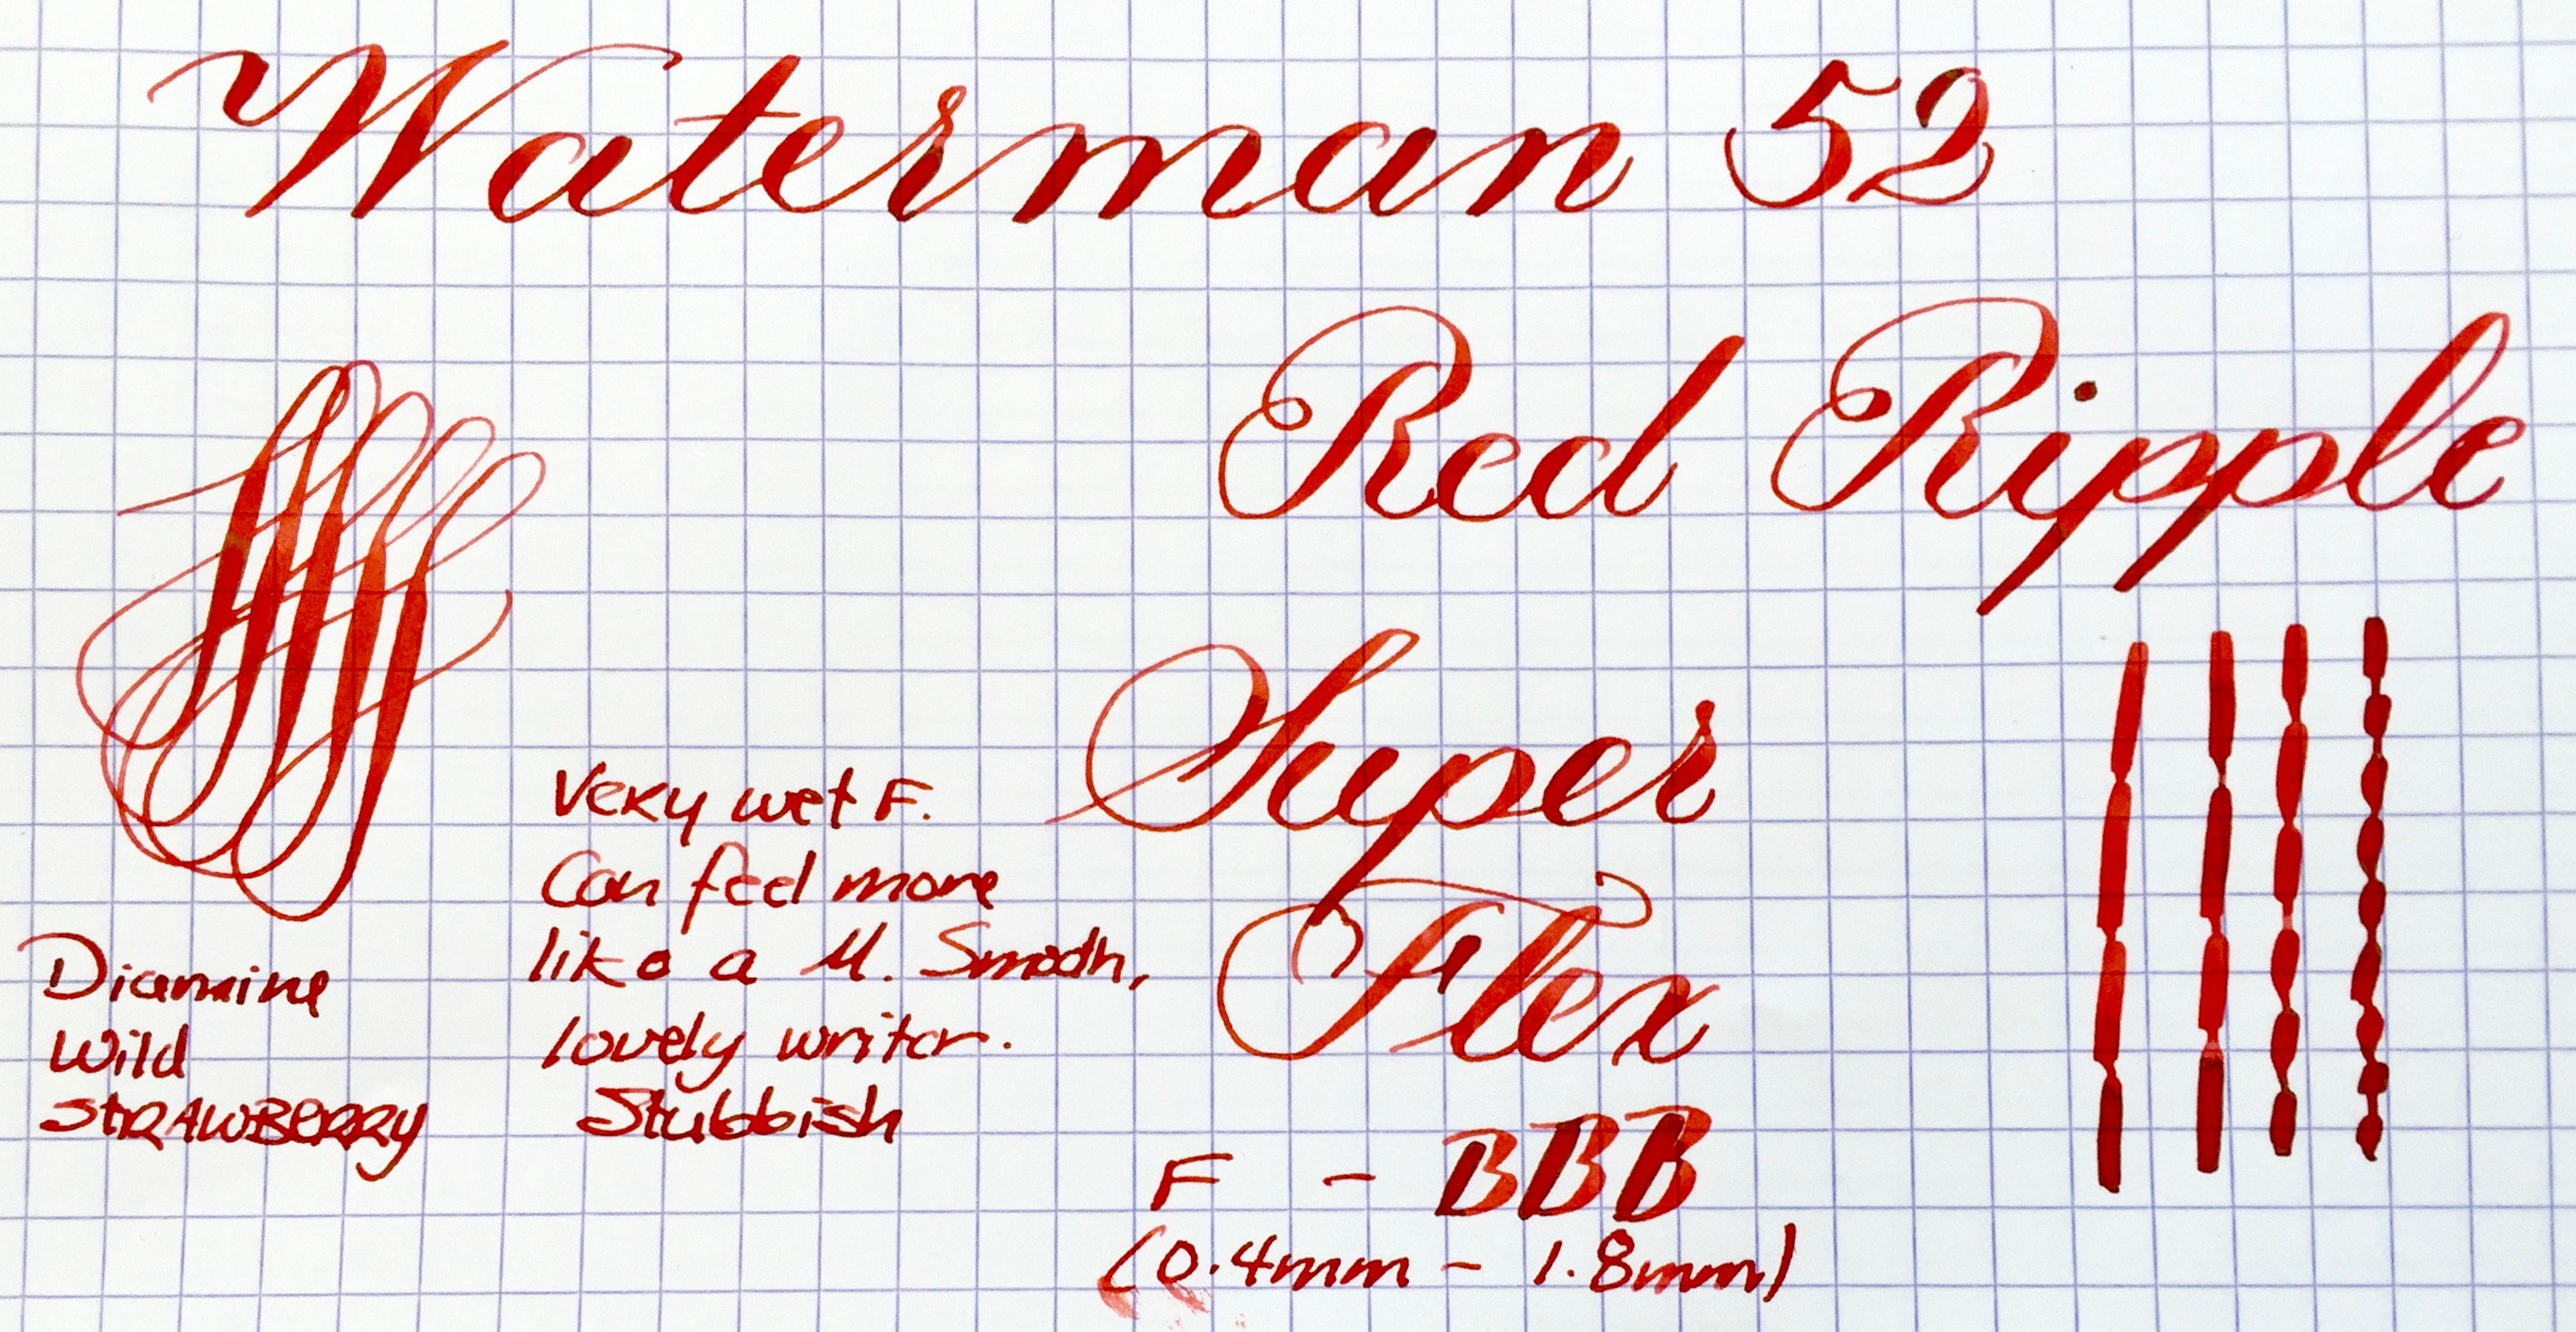 Waterman 52
Red Ripple
Super
Flex
F - BBB
(0.4mm - 1.8mm)
Very wet F.
Can feel more
like a M. Smooth,
lovely writer.
Stubbish
Diamine
Wild
STRAWBERRY